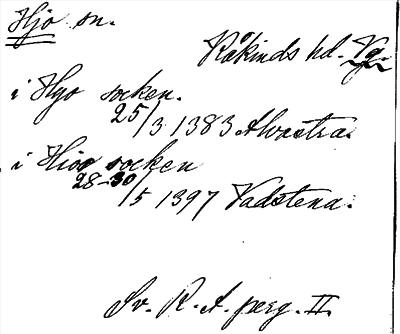 Hjo sn.
Kåkinds hd. Vg.
i Hyo socken.
25/3 1383 Alvastra.
i Hioo socken
28-30/5 1397 Vadstena.
Sv. R. A. perg. II.